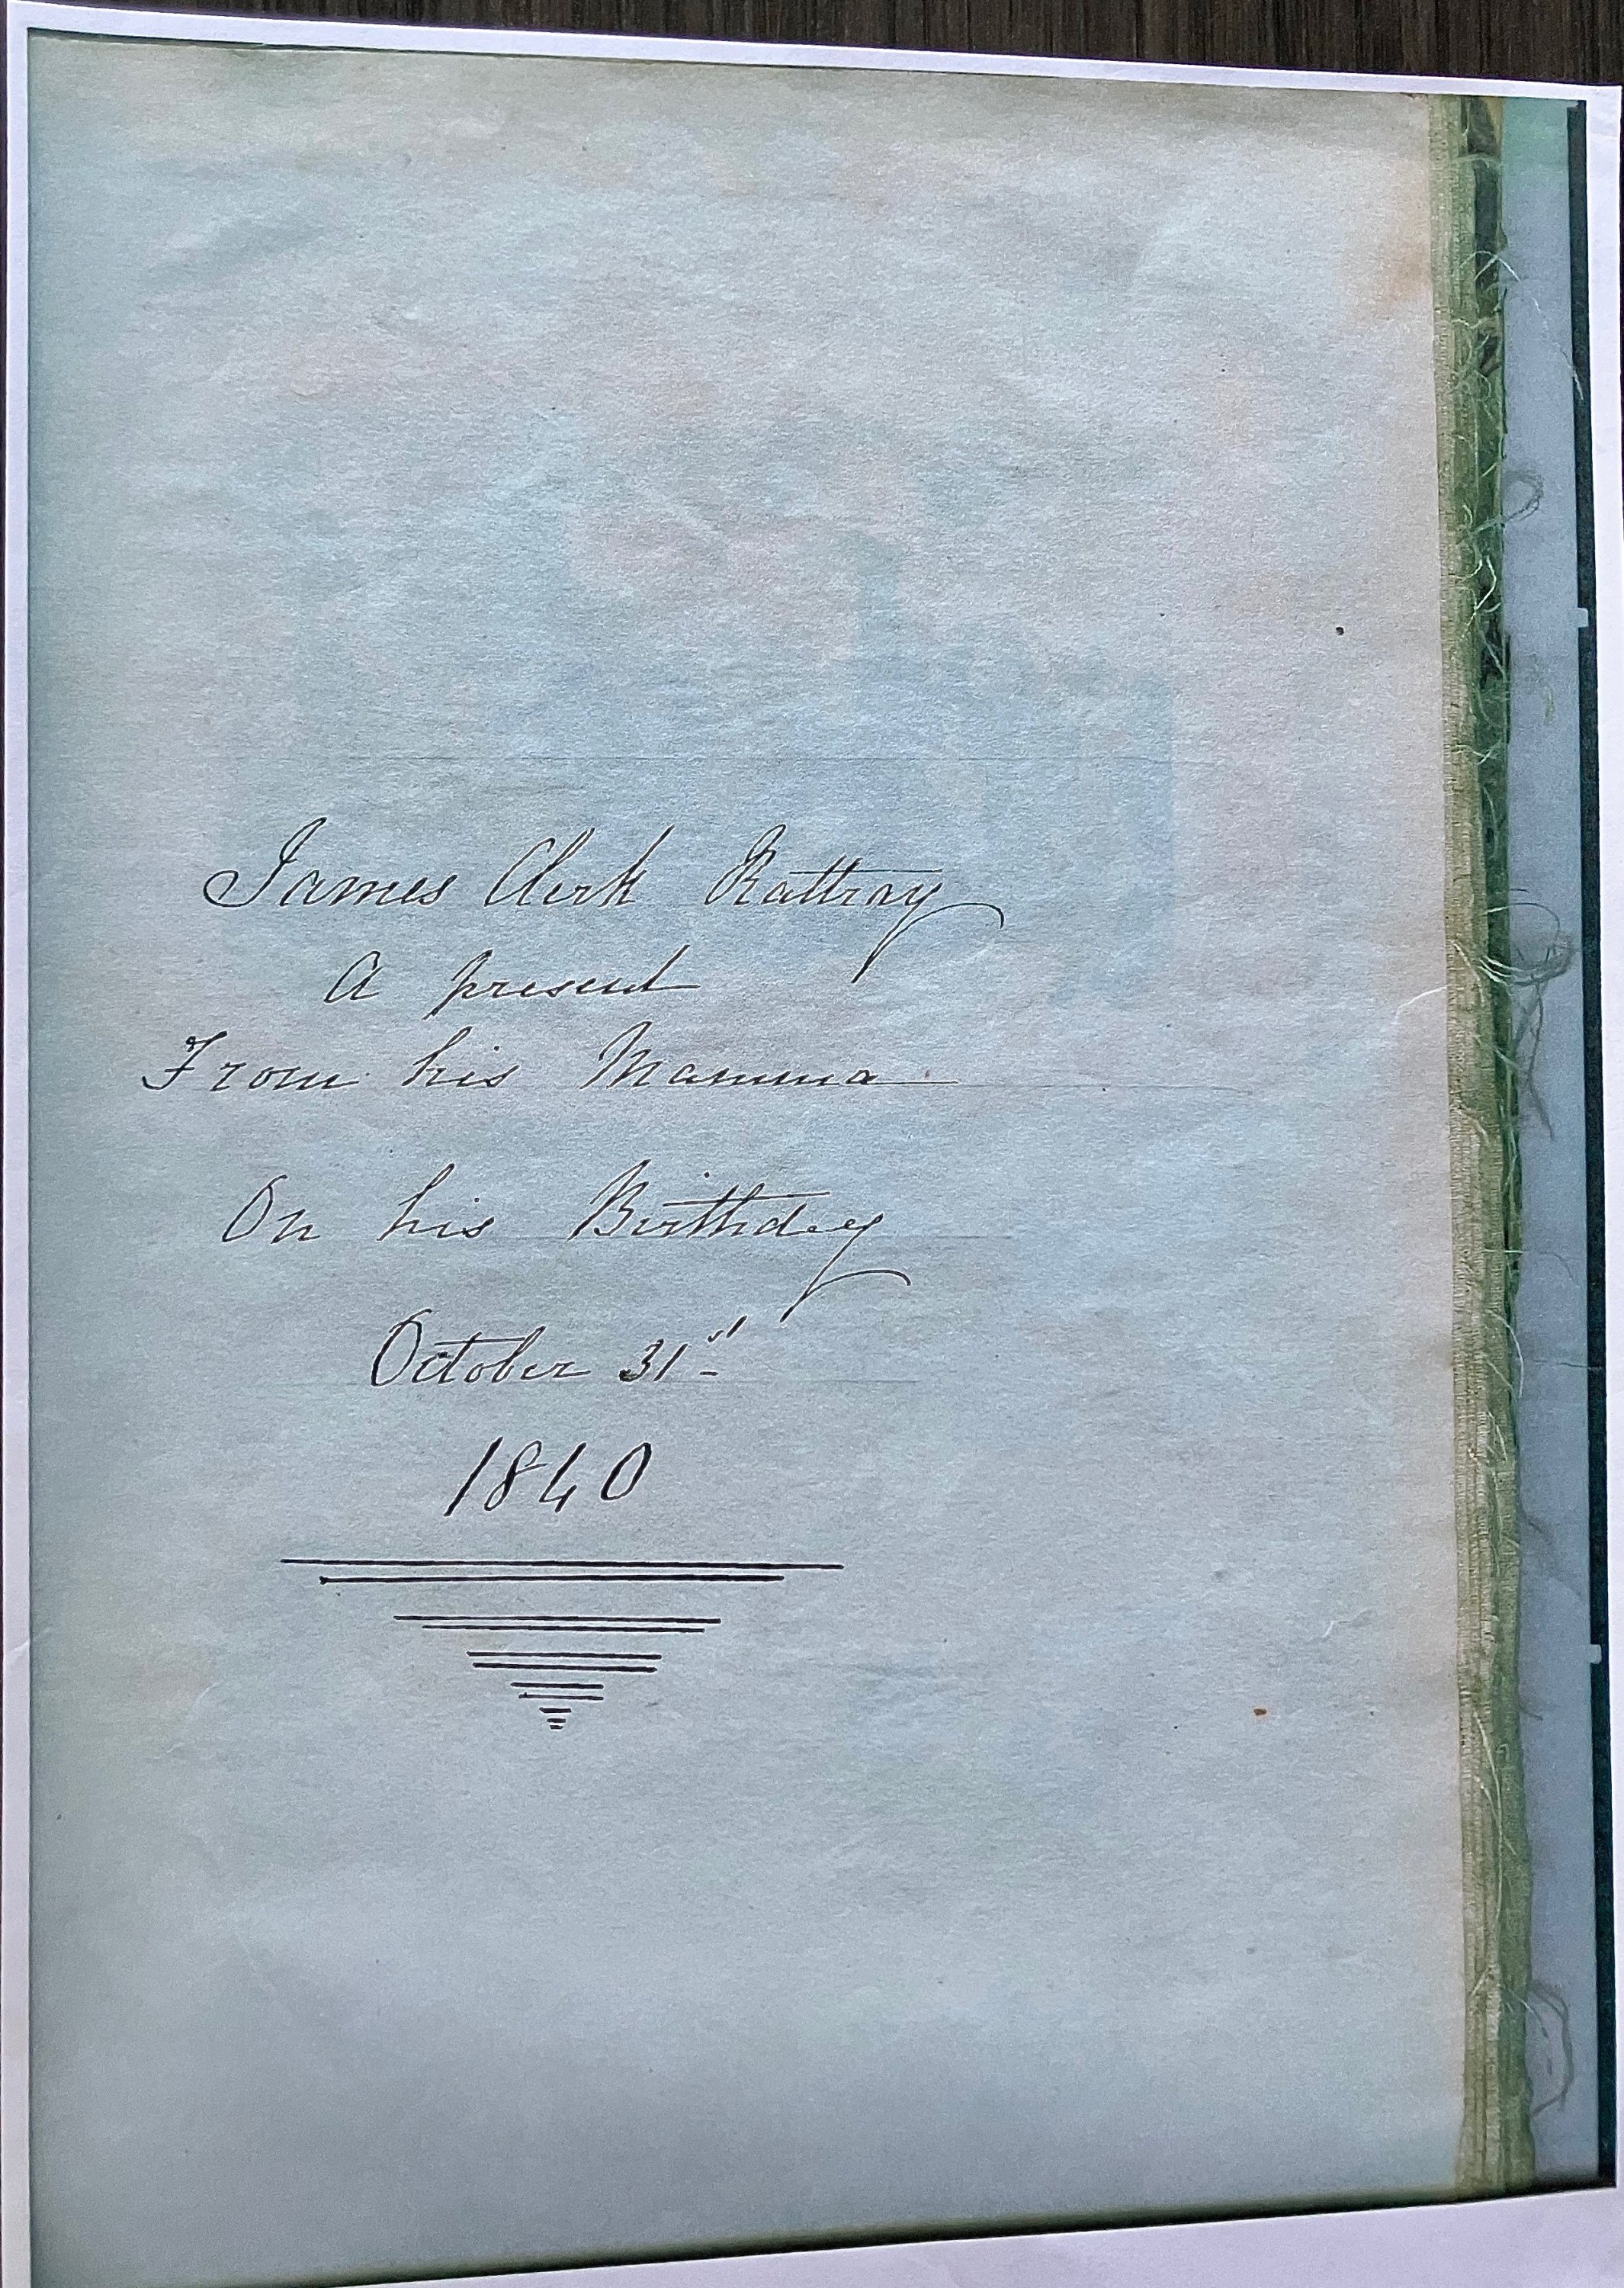 James Clerk Rattray
A present
From his Mamma
On his Birthday
October 31st
1840